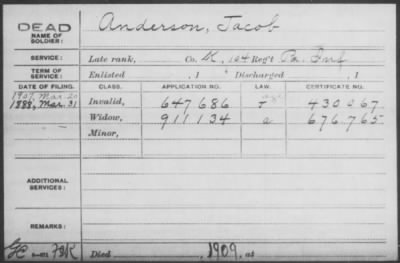 DEAD
NAME OF SOLDIER:
Anderson, Jacob
SERVICE: Late rank, Co. K, 104 Reg't Pa. Inf
TERM OF SERVICE: Enlisted , 1 Discharged , 1
DATE OF FILING. CLASS. APPLICATION NO. LAW. CERTIFICATE NO.
1907, Mar. 20 age
1888, Mar. 31 Invalid, 647686 430067
Widow, 911134 a 676765
Minor,
ADDITIONAL SERVICES:
REMARKS:
Died , 1909, at